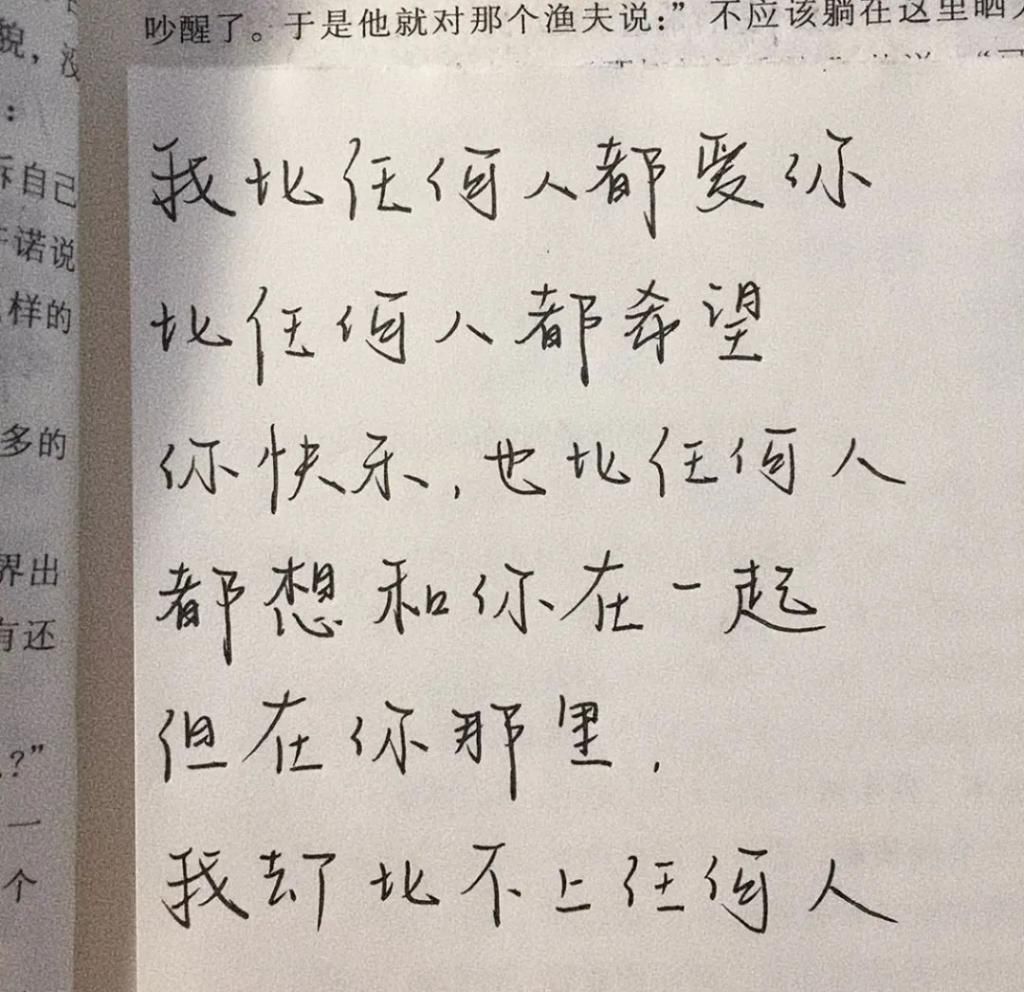 吵醒了。于是他就对那个渔夫说：”不应该躺在这里晒
我比任何人都爱你
比任何人都希望
你快乐，也比任何人
都想和你在一起
但在你那里，
我却比不上任何人
貌，没
：
诉自己
诺说
样的
多的
界出
有还
？”
一
个